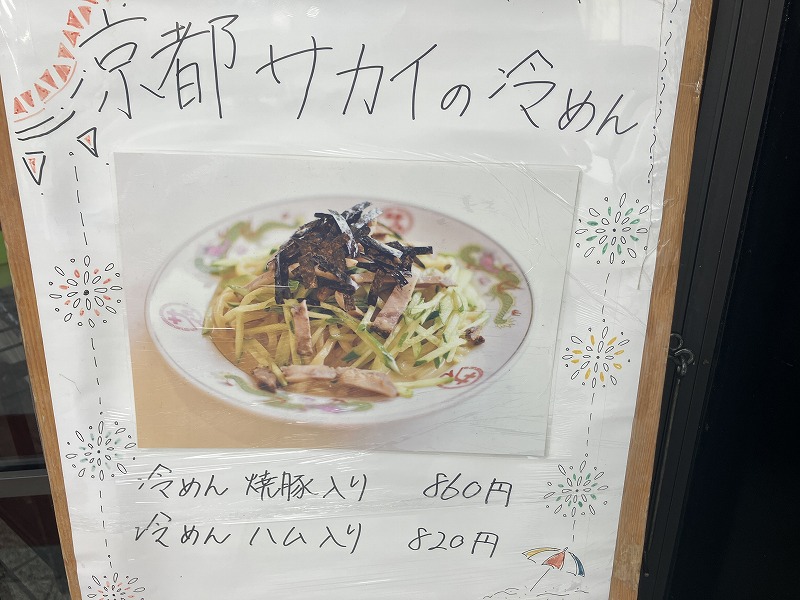 京都 サカイの冷めん
冷めん 焼豚入り 860円
冷めん ハム入り 820円